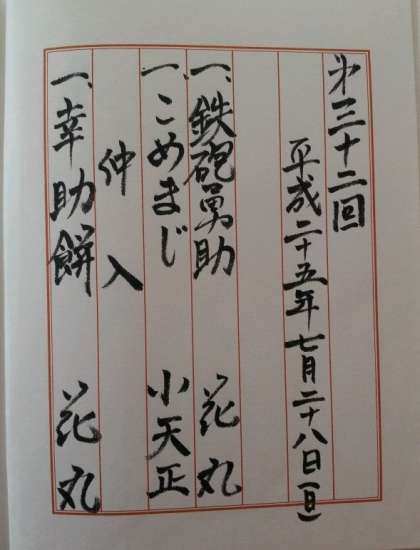 第三十二回
平成二十五年七月二十八日(日)
一、鉄砲勇助 花丸
一、こめまじ 小天正
仲入
一、幸助餅 花丸